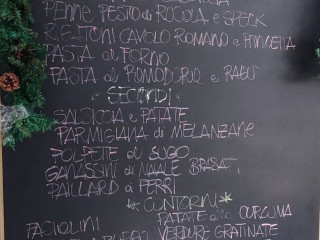 PENNE PESTO di RUCOLA e SPECK
CAVOLO ROMANO e PANCETTA
PASTA al FORNO
PASTA al POMODORO e RAGÙ
SECONDI
SALSICCIA e PATATE
PARMIGIANA di MELANZANE
POLPETTE al SUGO
GANASSINI di MAIALE BRASATI
PAILLARD ai FERRI
CONTORNI
PATATE alla CURCUMA
FAGIOLINI VERDURE GRATINATE